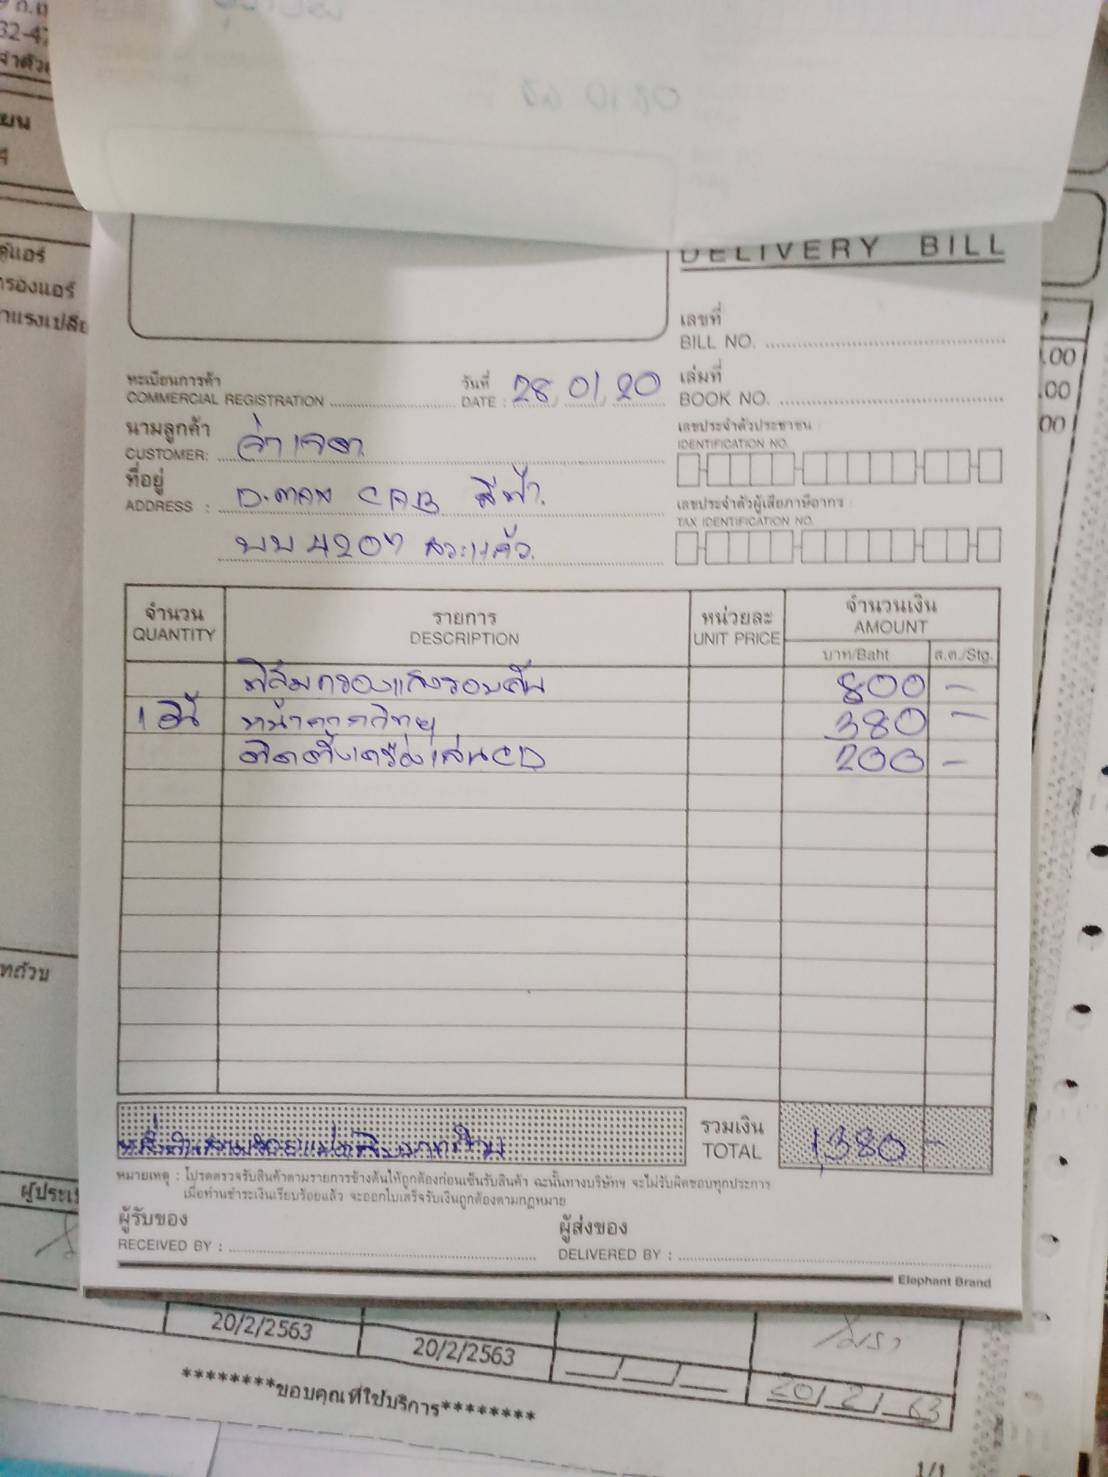 32-4
ยน
DELIVERY BILL
ตู้แอร์
กรองแอร์
เลขที่
BILL NO.
.00
ทะเบียนการค้า
COMMERCIAL REGISTRATION
วันที่
DATE : 28, 01, 20
เล่มที่
BOOK NO.
.00
นามลูกค้า
CUSTOMER: จ่าเจต
เลขประจำตัวประชาชน
IDENTIFICATION NO.
00
ที่อยู่
ADDRESS : D-MAX CAB สีฟ้า
เลขประจำตัวผู้เสียภาษีอากร
TAX IDENTIFICATION NO.
บบ 4207 สระแก้ว
จำนวน
QUANTITY
รายการ
DESCRIPTION
หน่วยละ
UNIT PRICE
จำนวนเงิน
AMOUNT
บาท/Baht
ส.ต./Stg.
ฟิล์มกรองแสงรอบคัน 800 -
1 อัน หน้ากากวิทยุ 380 -
ติดตั้งเครื่องเล่นCD 200 -
ทถ้วน
หนึ่งพันสามร้อยแปดสิบบาทถ้วน
รวมเงิน
TOTAL
1,380 -
หมายเหตุ : โปรดตรวจรับสินค้าตามรายการข้างต้นให้ถูกต้องก่อนเซ็นรับสินค้า ฉะนั้นทางบริษัทฯ จะไม่รับผิดชอบทุกประการ
เมื่อท่านชำระเงินเรียบร้อยแล้ว จะออกใบเสร็จรับเงินถูกต้องตามกฎหมาย
ผู้รับของ
RECEIVED BY :
ผู้ส่งของ
DELIVERED BY :
Elephant Brand
20/2/2563
20/2/2563
20/2/63
********ขอบคุณที่ใช้บริการ********
1/1